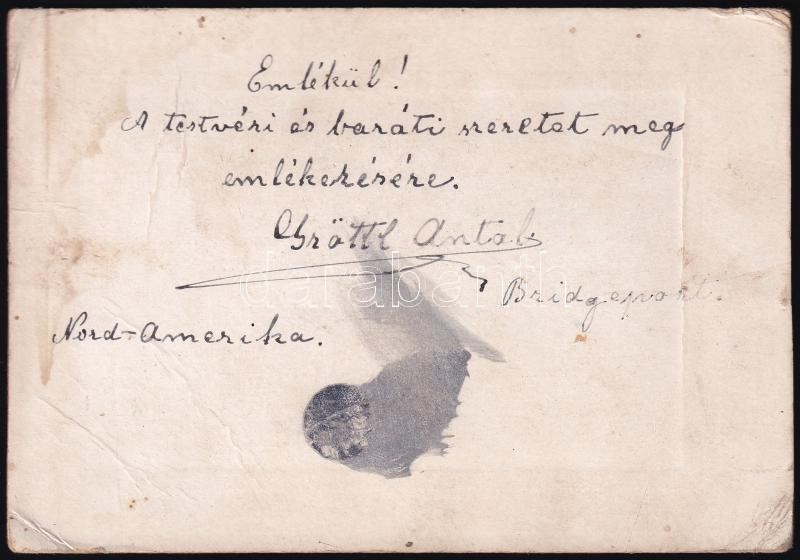 Emlékül!
A testvéri és baráti szeretet meg
emlékezésére.
Gröttl Antal
Bridgeport.
Nord-Amerika.
darabanth